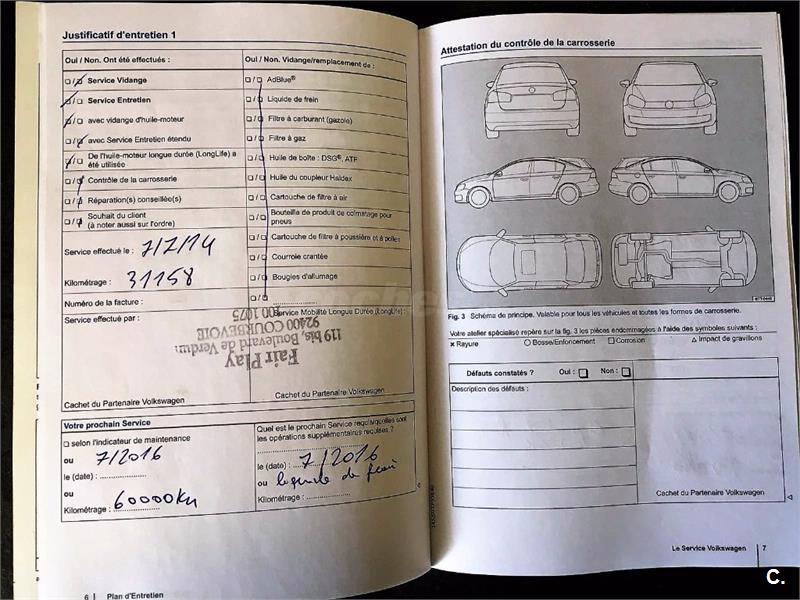 Justificatif d'entretien 1
Oui / Non. Ont été effectués :
Service Vidange
Service Entretien
avec vidange d'huile-moteur
avec Service Entretien étendu
De l'huile-moteur longue durée (LongLife) a
été utilisée
Contrôle de la carrosserie
Réparation(s) conseillée(s)
Souhait du client
(à noter aussi sur l'ordre)
Service effectué le : 7/7/14
Kilométrage : 31158
Numéro de la facture :
Service effectué par :
Cachet du Partenaire Volkswagen
Oui / Non. Vidange/remplacement de :
AdBlue®
Liquide de frein
Filtre à carburant (gazole)
Filtre à gaz
Huile de boîte : DSG®, ATF
Huile du coupleur Haldex
Cartouche de filtre à air
Bouteille de produit de colmatage pour
pneus
Cartouche de filtre à poussière et à pollens
Courroie crantée
Bougies d'allumage
Service Mobilité Longue Durée (LongLife) :
Fair Play
119 bis, Boulevard de Verdun
92400 COURBEVOIE
Cachet du Partenaire Volkswagen
Votre prochain Service
selon l'indicateur de maintenance
ou
7/2016
le (date) :
ou
60000Km
Kilométrage :
Quel est le prochain Service requis/quelles sont
les opérations supplémentaires requises ?
le (date) : 7/2016
ou
Kilométrage :
6 Plan d'Entretien
Attestation du contrôle de la carrosserie
Fig. 3 Schéma de principe. Valable pour tous les véhicules et toutes les formes de carrosserie.
Votre atelier spécialisé repère sur la fig. 3 les pièces endommagées à l'aide des symboles suivants :
× Rayure ○ Bosse/Enfoncement □ Corrosion △ Impact de gravillons
Défauts constatés ? Oui : Non :
Description des défauts :
Cachet du Partenaire Volkswagen
Le Service Volkswagen 7
C.